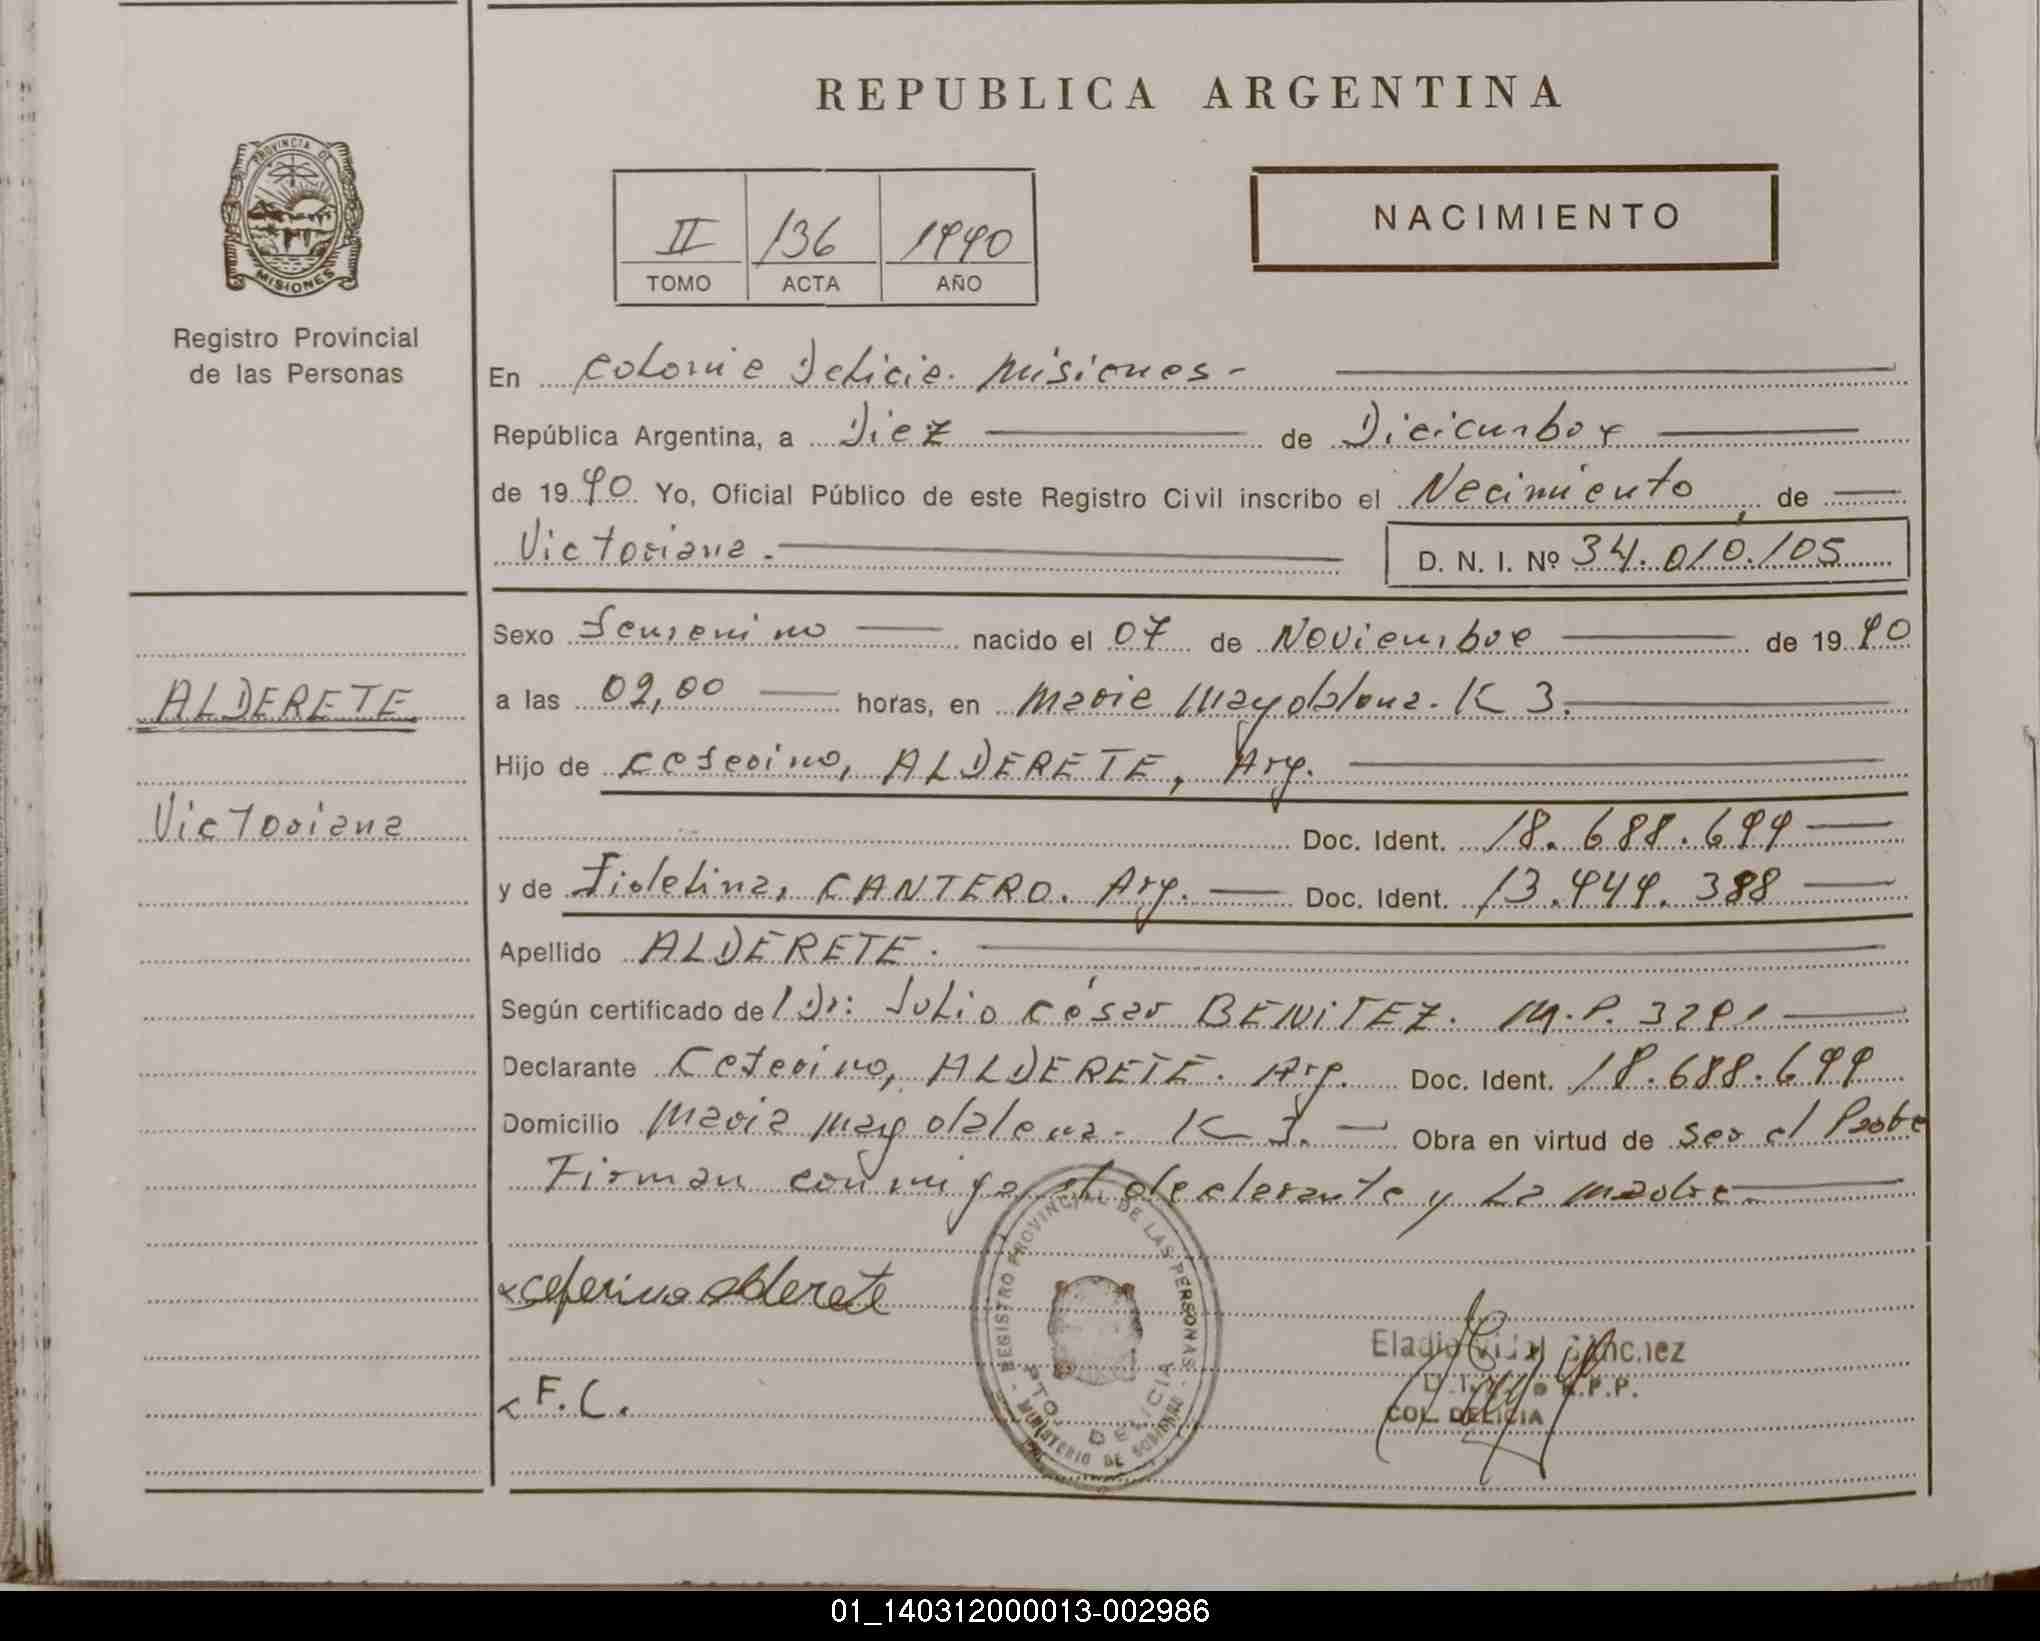 REPUBLICA ARGENTINA
PROVINCIA DE
MISIONES
Registro Provincial
de las Personas
II 136 1990
TOMO ACTA AÑO
NACIMIENTO
En Colonia Delicia. Misiones -
República Argentina, a Diez de Diciembre
de 1990 Yo, Oficial Público de este Registro Civil inscribo el Nacimiento, de
Victoriana. D. N. I. Nº 34.010.105
Sexo femenino nacido el 07 de Noviembre de 1990
ALDERETE
a las 02,00 horas, en Maria Magdalena. K 3.
Hijo de Ceferino, ALDERETE, Arg.
Victoriana
Doc. Ident. 18.688.699
y de Fidelina, CANTERO. Arg. Doc. Ident. 13.949.388
Apellido ALDERETE.
Según certificado del Dr: Julio César BENITEZ. M.P. 3291
Declarante Ceferino, ALDERETE. Arg. Doc. Ident. 18.688.699
Domicilio Maria Magdalena. K 3. Obra en virtud de ser el Padre
Firman conmigo el declarante y La madre.
REGISTRO PROVINCIAL DE LAS PERSONAS
DELICIA
MINISTERIO DE GOBIERNO
ceferino alderete
Eladio Vidal Sánchez
R.P.P.
COL. DELICIA
F. C.
01_140312000013-002986